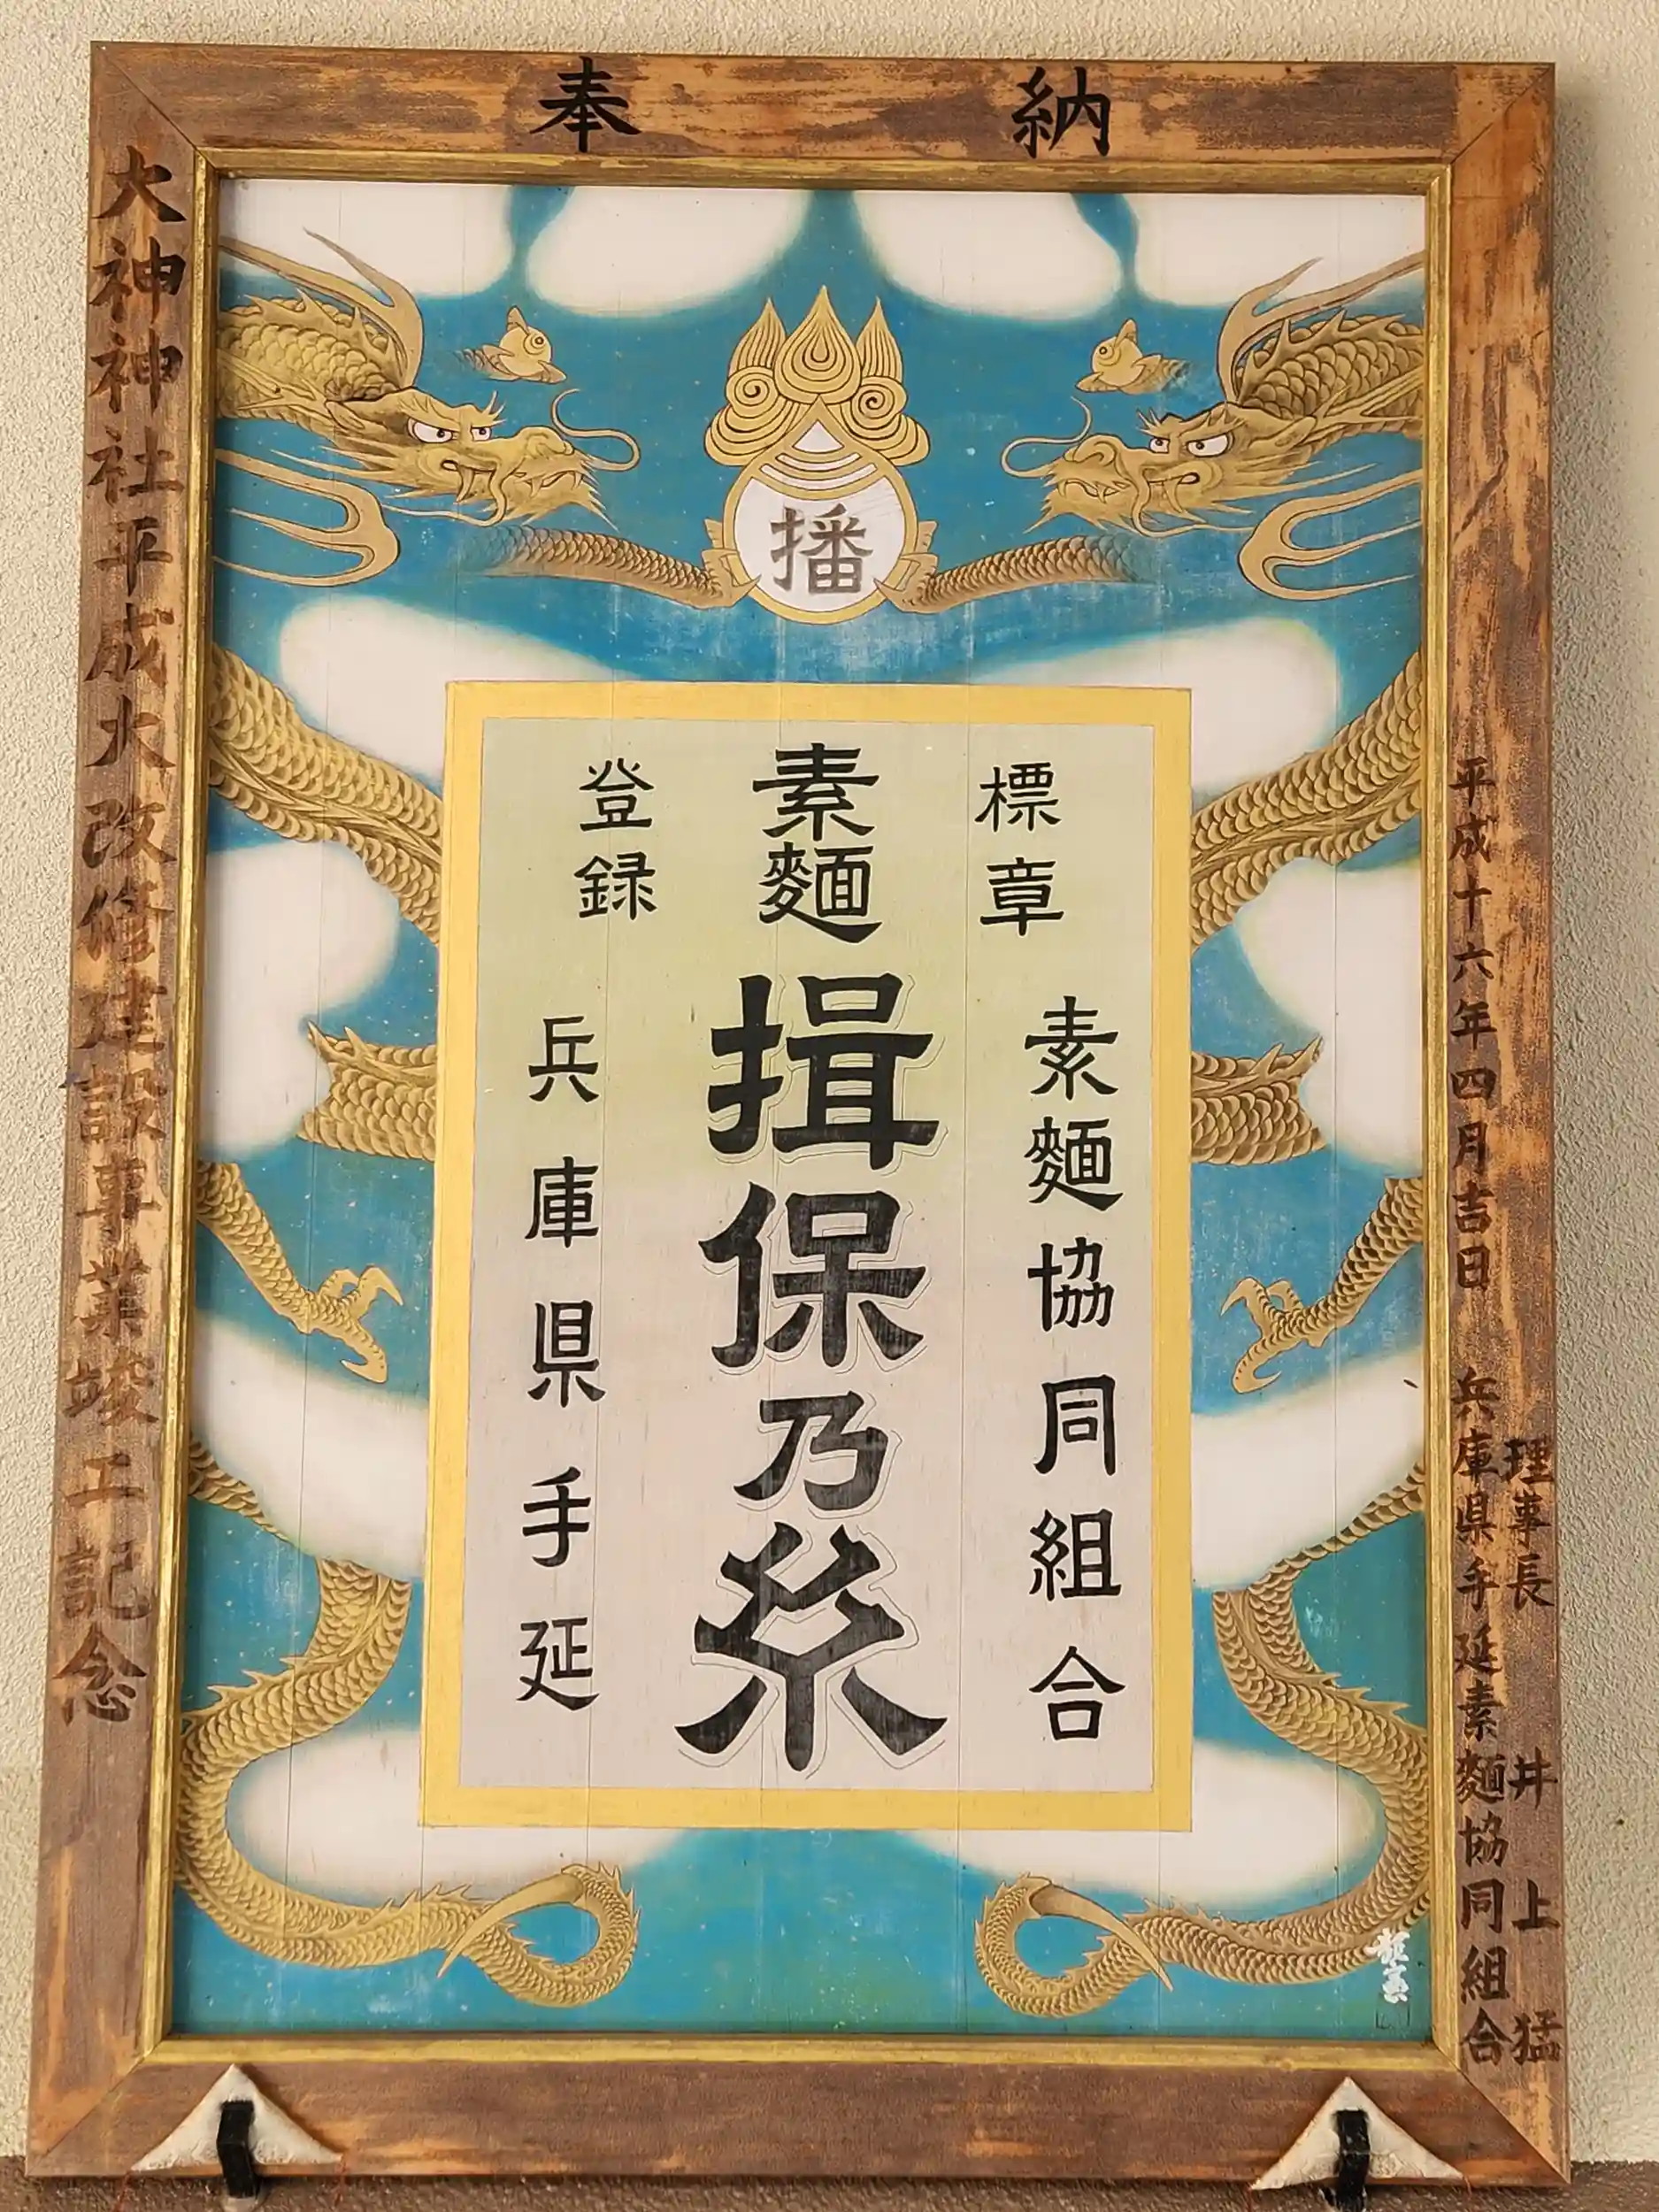 奉納
平成十六年四月吉日 兵庫県手延素麵協同組合
理事長 井上 猛
播
登録 素麵 標章
揖保乃糸
素麵協同組合
兵庫県手延
大神神社平成大改修建設事業竣工記念